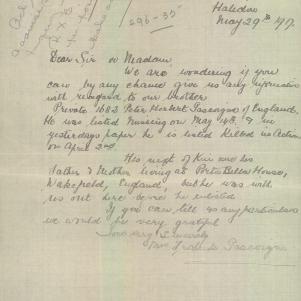 296-35
Halidon
May 29th 1917.
Dear Sir or Madam,
We are wondering if you
can by any chance give us any information
with regard to our brother
Private 1682 Peter Herbert Gascoyne of England.
He was listed missing on May 4th, & in
yesterdays paper he is listed Killed in Action
on April 2nd.
His next of Kin are his
Father & Mother living at Portobello House,
Wakefield, England, but he was with
us out here before he enlisted.
If you can tell us any particulars
we would be very grateful
Yours very sincerely